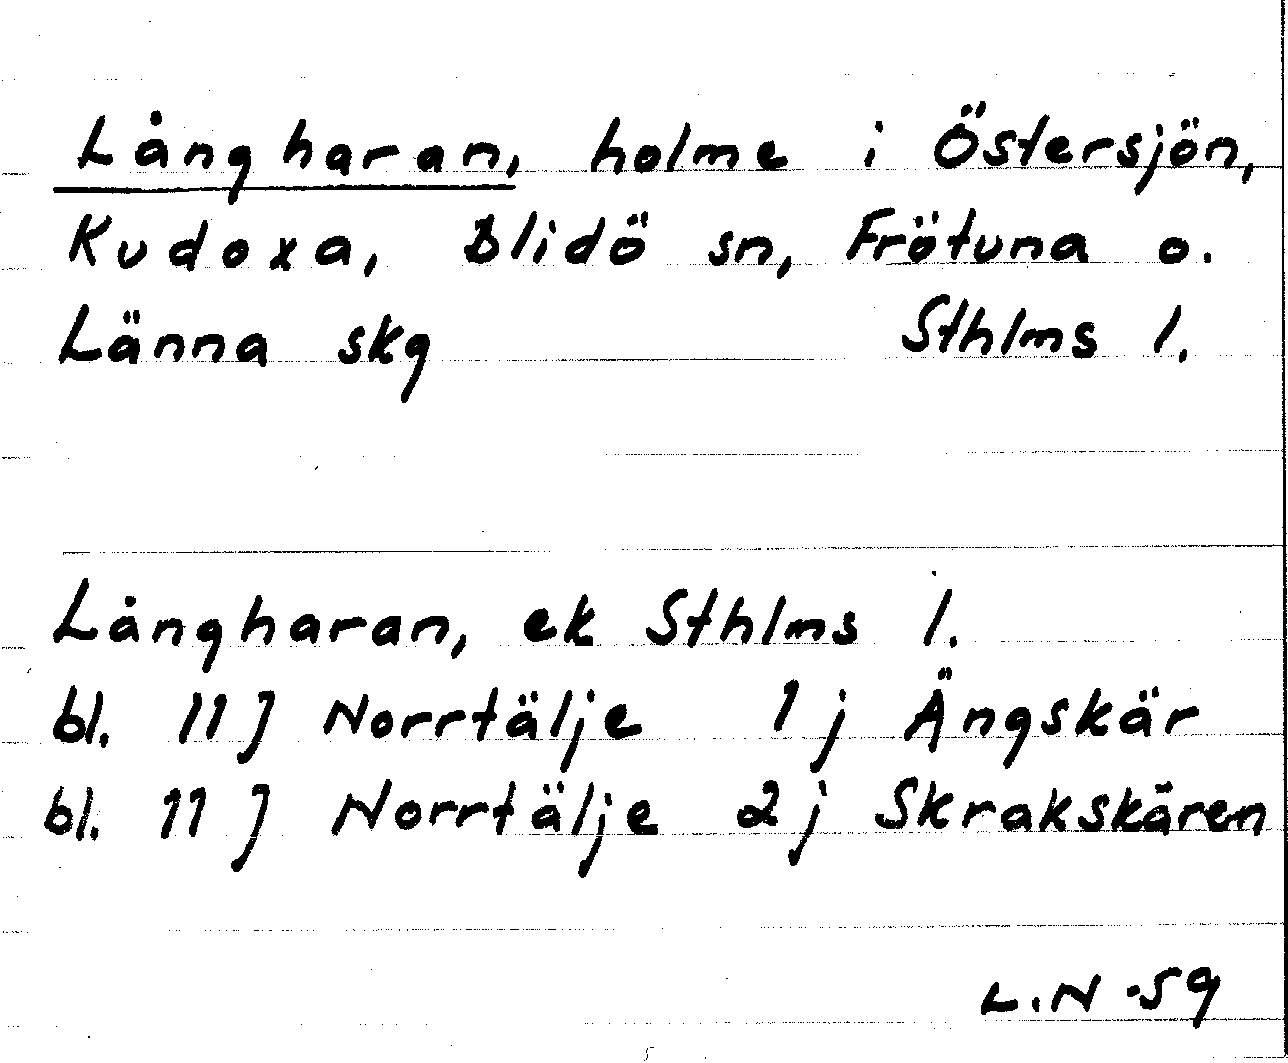 Långharan, holme i Östersjön,
Kudoxa, Blidö sn, Frötuna o.
Länna skg Sthlms l.
Långharan, ek Sthlms l.
bl. 11J Norrtälje 1j Ängskär
bl. 11J Norrtälje 2j Skrakskären
L.N -59